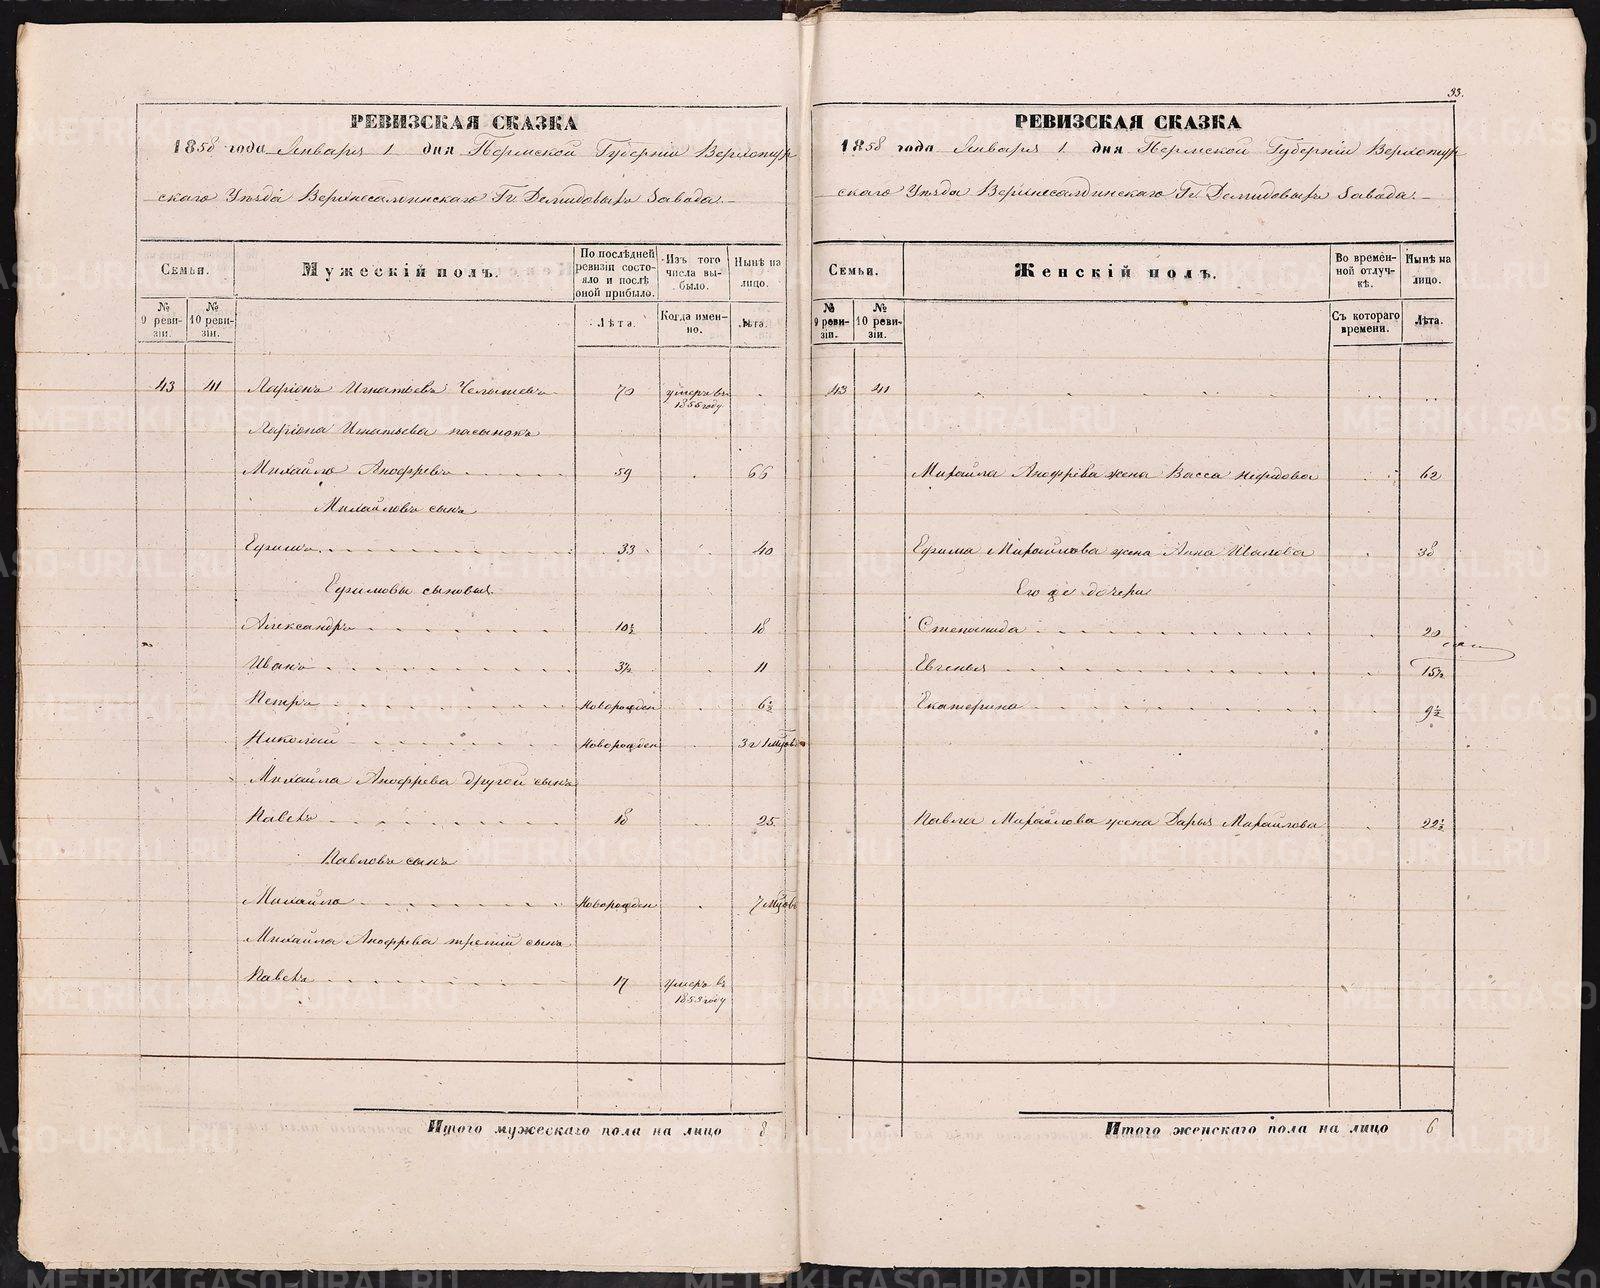 33.
РЕВИЗСКАЯ СКАЗКА
1858 года Января 1 дня Пермской Губерніи Верхотур
скаго Уѣзда Верхнесалдинскаго Гг. Демидовыхъ Завода.
Семьи.
Мужескій полъ.
По послѣдней ревизіи состояло и послѣ оной прибыло.
Изъ того числа выбыло.
Нынѣ на лицо.
№ 9 ревизіи.
№ 10 ревизіи.
Лѣта.
Когда именно.
Лѣта.
43 41 Ларіонъ Игнатьевъ 70 умеръ въ 1855 году.
Ларіона Игнатьева пасынокъ
Михайло Анофревъ 59 66
Михайловъ сынъ
Ефимъ 33 40
Ефимовы сыновья
Александръ 10½ 18
Иванъ 3½ 11
Петръ Новорожден 6½
Николай Новорожден 3 г 1 мѣсѣ
Михайла Анофрева другой сынъ
Павелъ 18 25
Павловъ сынъ
Михайло Новорожден 7 мѣсѣ
Михайла Анофрева третій сынъ
Павелъ 17 умеръ въ 1853 году
Итого мужескаго пола на лицо 8
РЕВИЗСКАЯ СКАЗКА
1858 года Января 1 дня Пермской Губерніи Верхотур
скаго Уѣзда Верхнесалдинскаго Гг. Демидовыхъ Завода.
Семьи.
Женскій полъ.
Во временной отлучкѣ.
Нынѣ на лицо.
№ 9 ревизіи.
№ 10 ревизіи.
Съ котораго времени.
Лѣта.
43 41
Михайла Анофрева жена Васса Нефедова 62
Ефима Михайлова жена Анна Иванова 38
Его же дочери
Степанида 20
Евгенья 15½
Екатерина 9½
Павла Михайлова жена Дарья Михайлова 22½
Итого женскаго пола на лицо 6
METRIKI.GASO-URAL.RU